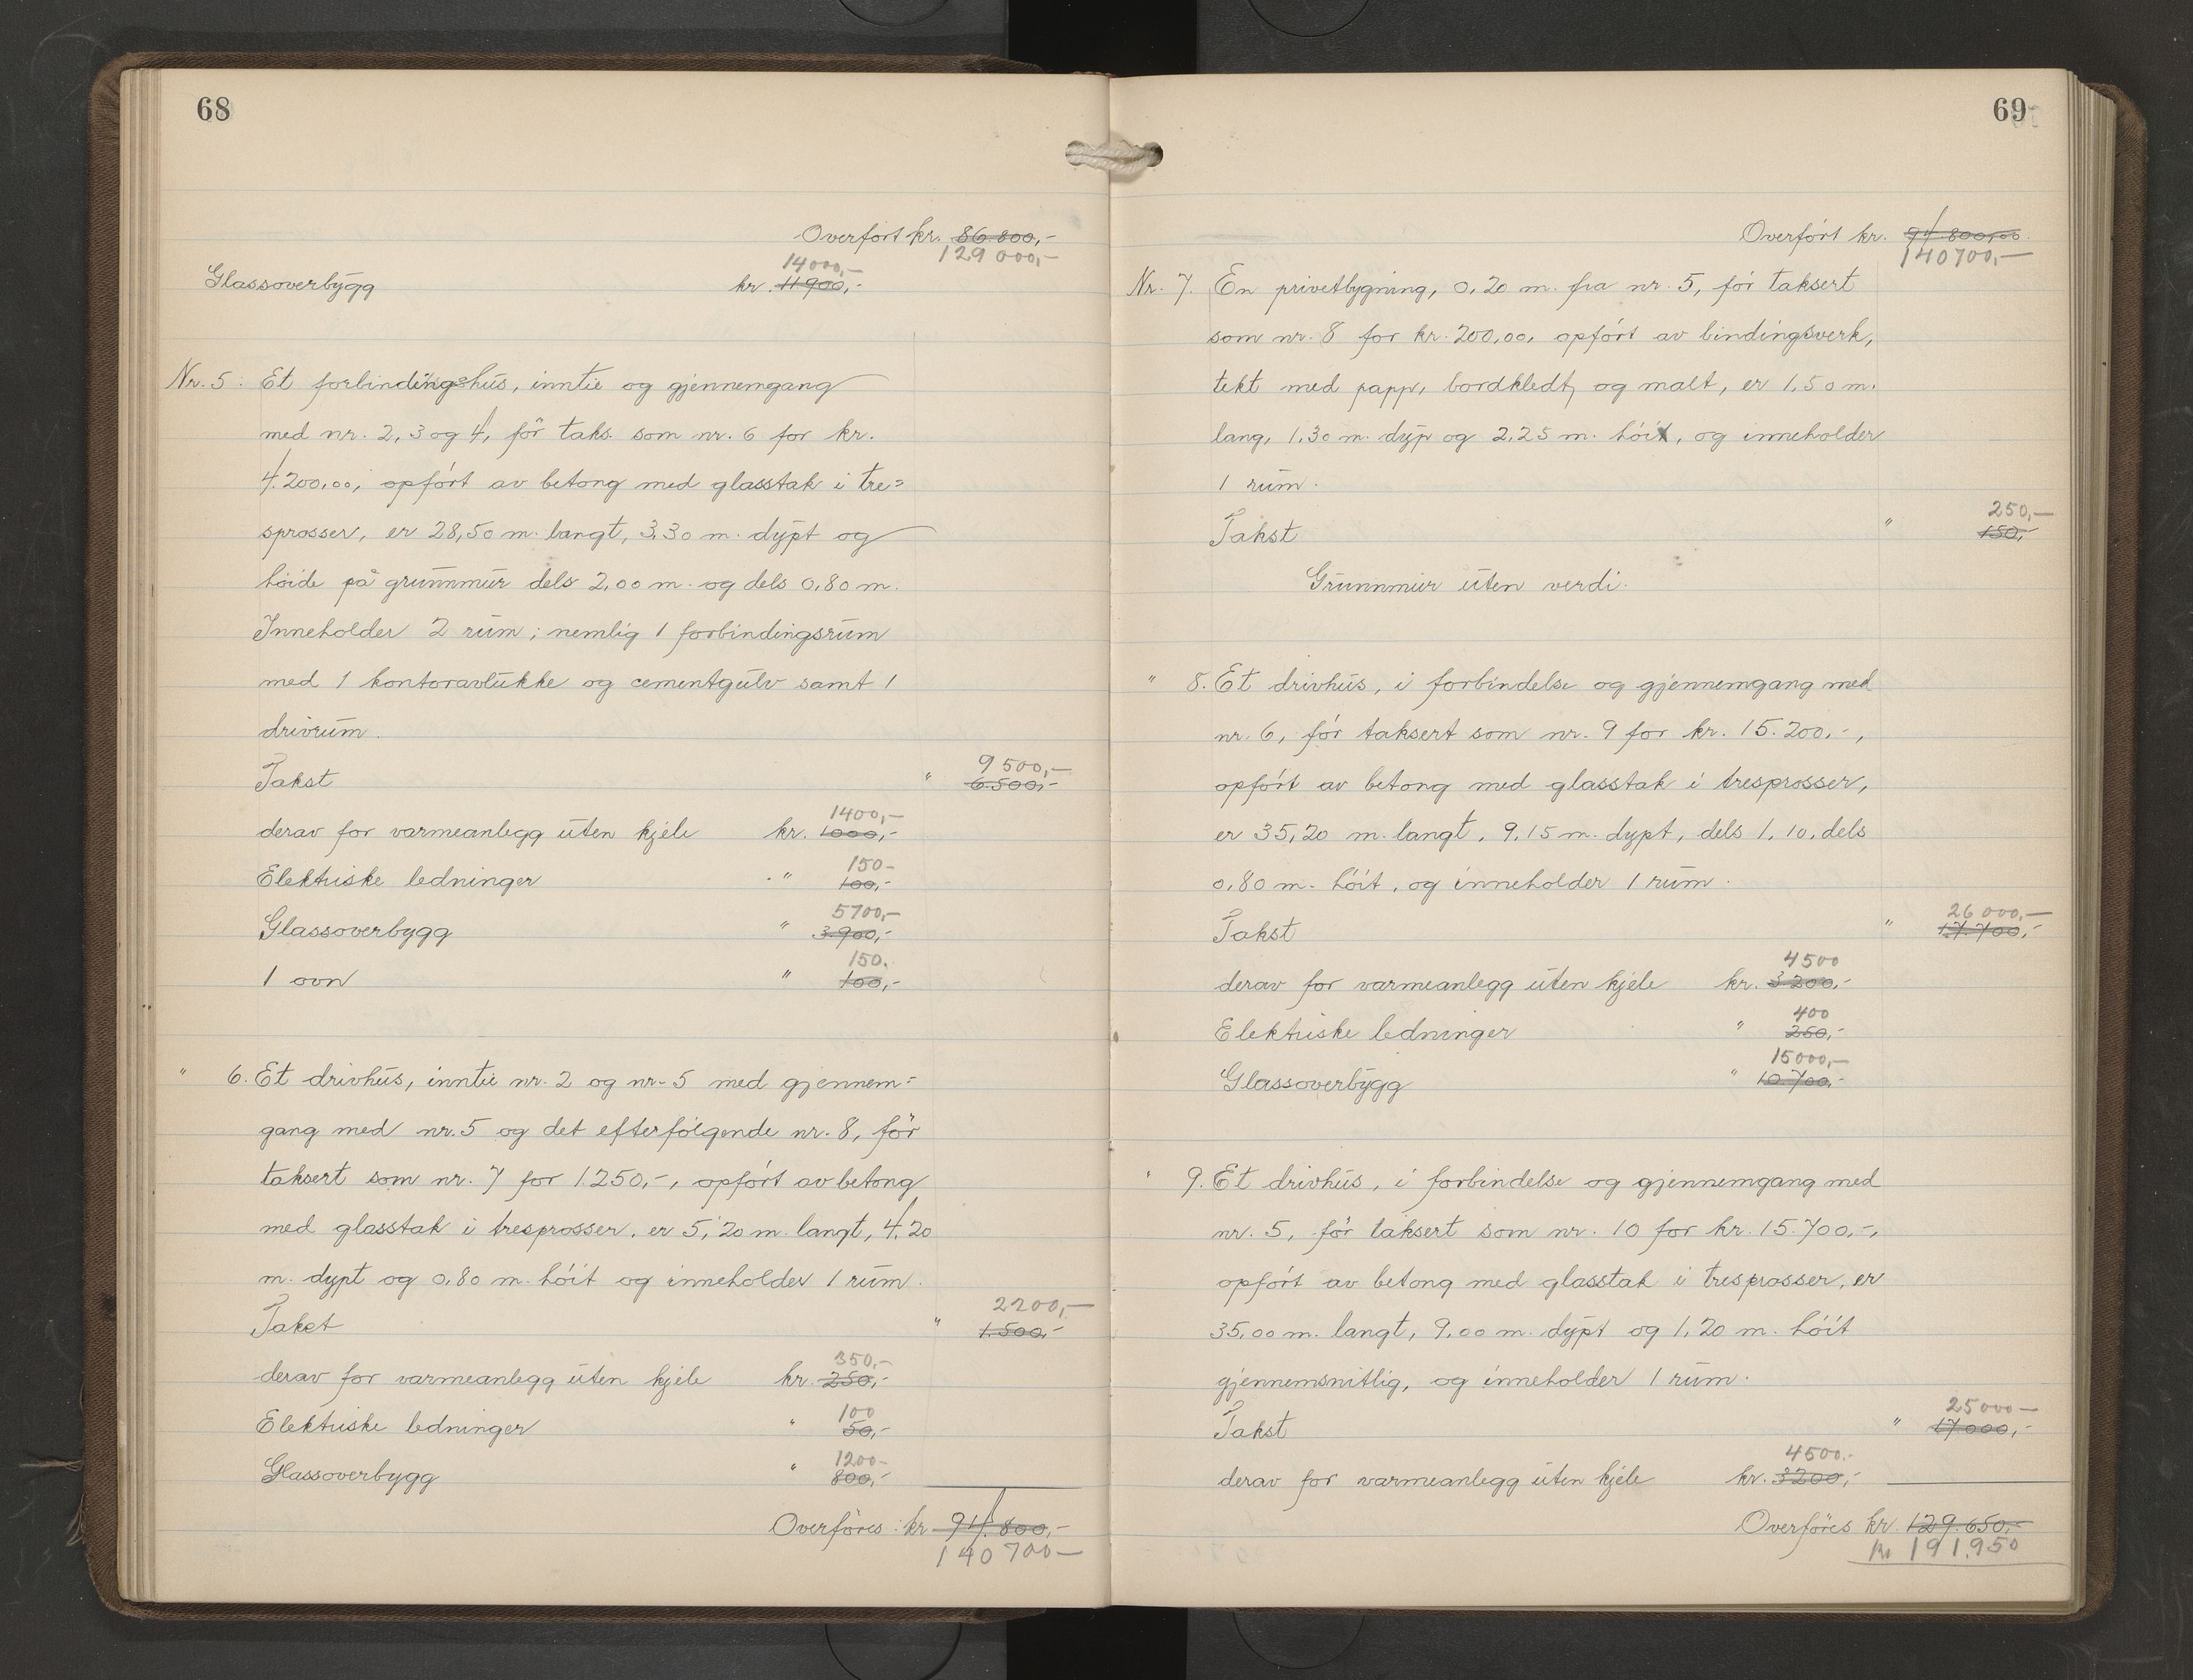 68
Overført kr. 86.800,-
129 000,-
14000,-
Glassoverbygg kr. 11900,-
Nr. 5. Et forbindingshus, inntil og gjennemgang
med nr. 2, 3 og 4, før taks. som nr. 6 for kr.
4.200,00, opført av betong med glasstak i tre=
sprosser, er 28,50 m. langt, 3.30 m. dypt og
høide på grunnmur dels 2,00 m. og dels 0,80 m.
Inneholder 2 rum; nemlig 1 forbindingsrum
med 1 kontoravlukke og cementgulv samt 1
drivrum.
9500,-
Takst " 6.500,-
1400,-
derav for varmeanlegg uten kjele kr. 1000,-
150-
Elektriske ledninger " 100,-
5700,-
Glassoverbygg " 3.900,-
150.
1 ovn " 100,-
" 6. Et drivhus, inntil nr. 2 og nr. 5 med gjennem=
gang med nr. 5 og det efterfølgende nr. 8, før
taksert som nr. 7 for 1.250,-, opført av betong
med glasstak i tresprosser, er 5,20 m. langt, 4,20
m. dypt og 0,80 m. høit og inneholder 1 rum.
2200,-
Takst " 1.500,-
350,-
derav for varmeanlegg uten kjele kr. 250,-
100
Elektriske ledninger " 50,-
1200-
Glassoverbygg " 800,-
Overføres: kr 94.800,-
140700-
69
Overført kr. 94.800,00.
140700,-
Nr. 7. En privetbygning, 0,20 m. fra nr. 5, før taksert
som nr. 8 for kr. 200,00, opført av bindingsverk,
tekt med papp, bordkledt, og malt, er 1,50 m.
lang, 1,30 m. dyp og 2,25 m. høit, og inneholder
1 rum.
250,-
Takst " 150,-
Grunnmur uten verdi.
" 8. Et drivhus, i forbindelse og gjennemgang med
nr. 6, før taksert som nr. 9 for kr. 15.200,-,
opført av betong med glasstak i tresprosser,
er 35,20 m. langt, 9,15 m. dypt, dels 1,10, dels
0,80 m. høit, og inneholder 1 rum.
26 000,-
Takst " 17.700,-
4500
derav for varmeanlegg uten kjele kr. 3200,-
400
Elektriske ledninger " 250,-
15000,-
Glassoverbygg " 10.700,-
" 9. Et drivhus, i forbindelse og gjennemgang med
nr. 5, før taksert som nr. 10 for kr. 15.700,-,
opført av betong med glasstak i tresprosser, er
35,00 m. langt, 9,00 m. dypt og 1,20 m. høit
gjennemsnitlig, og inneholder 1 rum.
25000-
Takst " 17000,-
4500.-
derav for varmeanlegg uten kjele kr. 3200,-
Overføres kr. 129.650,-
kr 191.950